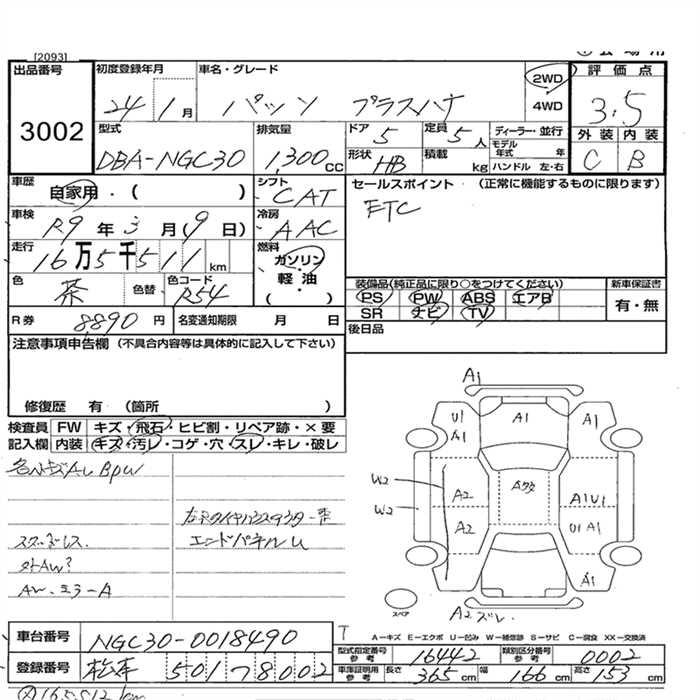 [2093]
出品番号
3002
初度登録年月
24 1月
車名・グレード
パッソ プラスハナ
2WD
4WD
評価点
3.5
外装 内装
C B
型式
DBA-NGC30
排気量
1,300 CC
ドア 5
定員 5人
形状 HB
積載 kg
ディーラー・並行
モデル年式 年
ハンドル 左・右
車歴
自家用・( )
シフト
CAT
車検
R9年3月(9日)
冷房
AAC
走行
16万5千511km
燃料
ガソリン・軽油・( )
色
茶
色替
色コード
R54
セールスポイント (正常に機能するものに限ります)
ETC
装備品(純正品に限り○をつけてください)
PS PW ABS エアB
SR ナビ TV
新車保証書
有・無
R券 8,890円
名変通知期限 月 日
後日品
注意事項申告欄 (不具合内容等は具体的に記入して下さい)
修復歴 有 (箇所 )
検査員記入欄
FW キズ・飛石・ヒビ割・リペア跡・×要
内装 キズ・汚レ・コゲ・穴・スレ・キレ・破レ
スタッドレス.
外AW?
AW、ミラーA
エンドパネルU
A1
U1
A1
A1
A1
W2
W2
A2
A2
A1U1
U1A1
A1
スペア
A2ズレ.
A－キズ E－エクボ U－凹み W－補修跡 S－サビ C－腐食 XX－交換済
車台番号
NGC30-0018490
登録番号
松本 501 ナ 8002
型式指定番号 参考
16442
類別区分番号 参考
0002
車庫証明用 参考
長さ 365cm 幅 166cm 高さ 153cm